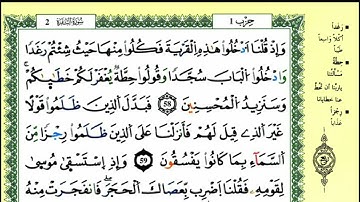 2 سورة البقرة حزب 1
وَإِذْ قُلْنَا ٱدْخُلُواْ هَٰذِهِ ٱلْقَرْيَةَ فَكُلُواْ مِنْهَا حَيْثُ شِئْتُمْ رَغَدًا
وَٱدْخُلُواْ ٱلْبَابَ سُجَّدًا وَقُولُواْ حِطَّةٌ يُغْفَرْ لَكُمْ خَطَٰيَٰكُمْ
وَسَنَزِيدُ ٱلْمُحْسِنِينَ 58 فَبَدَّلَ ٱلَّذِينَ ظَلَمُواْ قَوْلًا
غَيْرَ ٱلَّذِے قِيلَ لَهُمْ فَأَنزَلْنَا عَلَى ٱلَّذِينَ ظَلَمُواْ رِجْزًا مِّنَ
ٱلسَّمَآءِ بِمَا كَانُواْ يَفْسُقُونَ 59 وَإِذِ ٱسْتَسْقَىٰ مُوسَىٰ
لِقَوْمِهِۦ فَقُلْنَا ٱضْرِب بِّعَصَاكَ ٱلْحَجَرَ فَٱنفَجَرَتْ مِنْهُ
رَغَدًا
حِطَّةٌ
رِجْزًا
عذابا